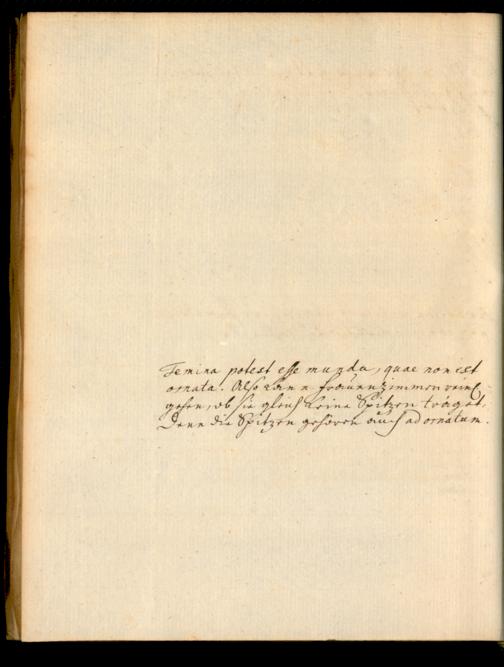 Femina potest esse munda, quae non est
ornata. Also kan n. frauenzimmer rein
gehen, ob sie gleich keine Spitzen träget.
Denn die Spitzen gehören auch ad ornatum.